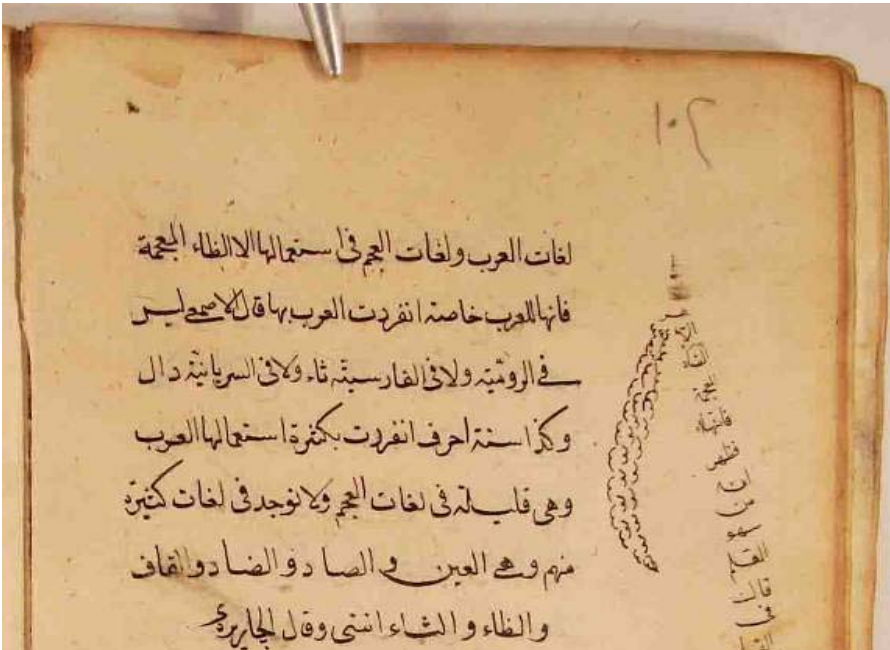 ١٠٢
لغات العرب ولغات العجم في استعمالها الا الظاء المعجمة
فانها للعرب خاصة انفردت العرب بها قال الاصمعي ليس
في الرومية ولا في الفارسية ثاء ولا في السريانية ذال
وكذا ستة احرف انفردت بكثرة استعمالها العرب
وهي قليلة في لغات العجم ولا توجد في لغات كثيرة
منهم وهي العين و الصاد و الضاد والقاف
والظاء و الثاء انتهى وقال الجاربردي